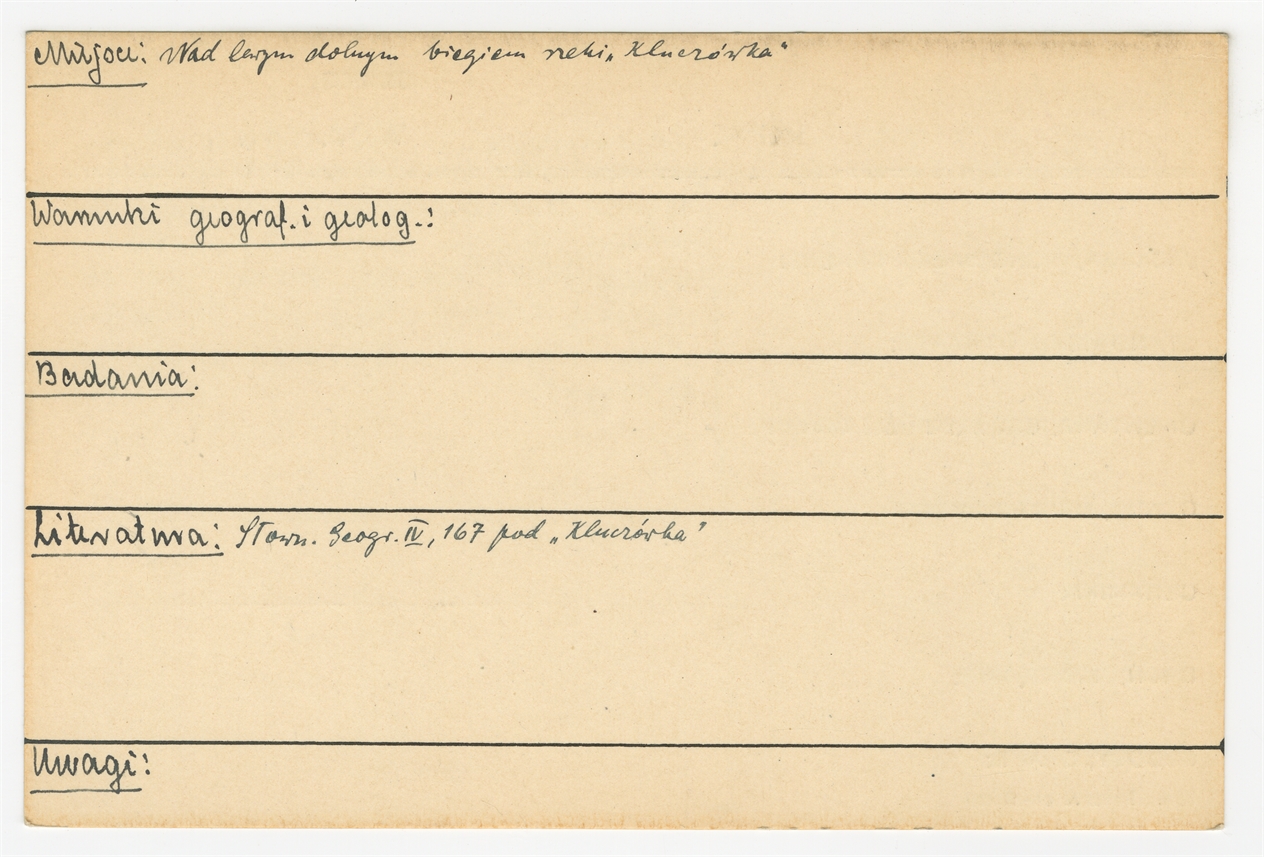 Miejsce: Nad lewym dolnym biegiem rzeki „Kluczówka"
Warunki geograf. i geolog.:
Badania:
Literatura: Słown. Geogr. IV, 167 pod „Kluczówka"
Uwagi: